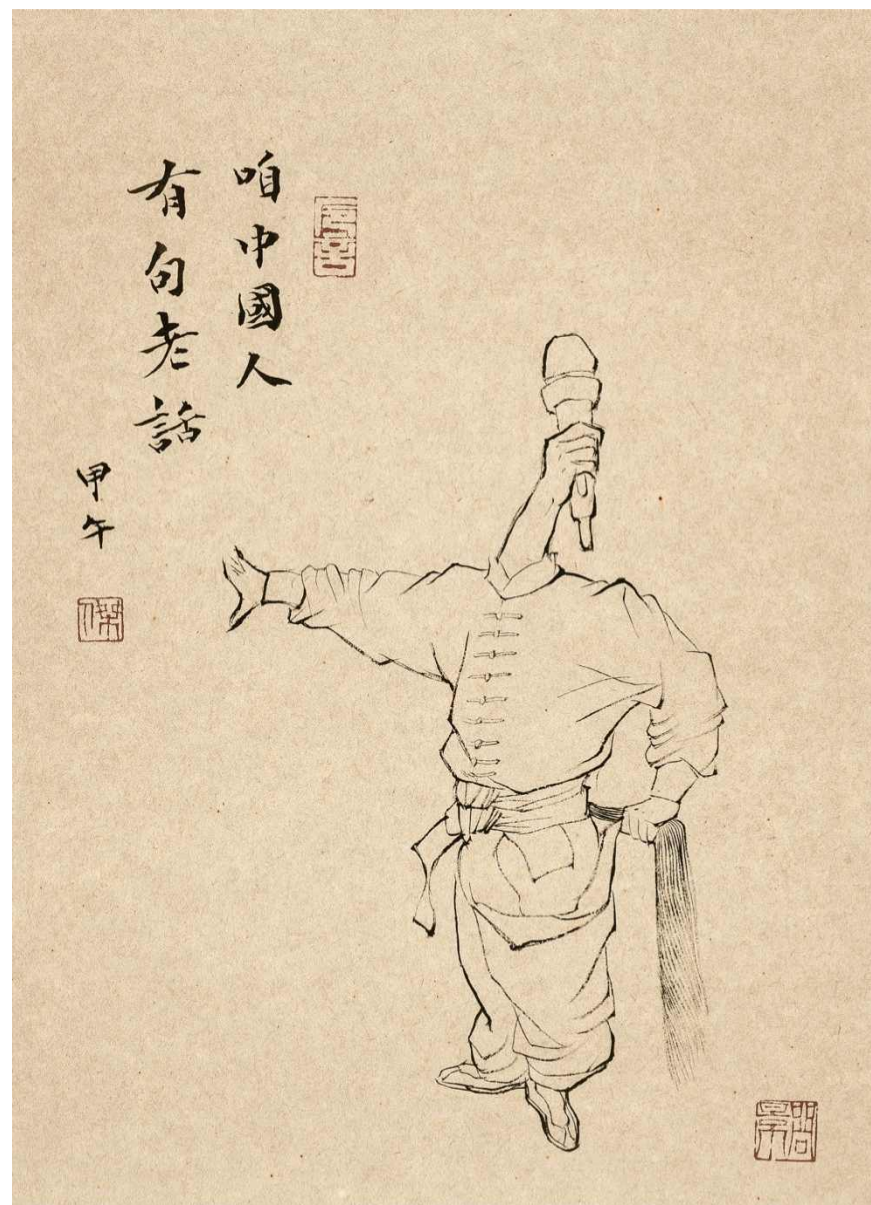 咱中國人
有句老話
甲午
傑